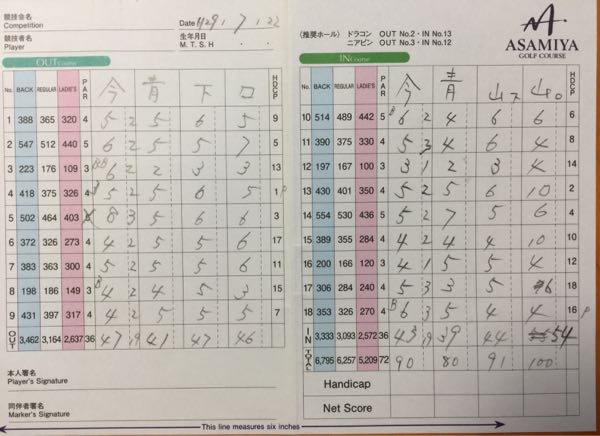 競技会名
Competition
Date H29. 7. 22
競技者名
Player
生年月日
M. T. S. H
〈推奨ホール〉 ドラコン OUT No.2・IN No.13
ニアピン OUT No.3・IN No.12
ASAMIYA
GOLF COURSE
OUT Course
No. BACK REGULAR LADIE'S PAR 今 青 下 口 HDCP
1 388 365 320 4 5 2 5 6 5 9
2 547 512 440 5 6 2 5 5 7 5
3 223 176 109 3 BB 6 2 2 3 3 13
4 418 375 326 4 5 2 5 6 5 1 P
5 502 464 403 8 3 5 6 6 3
6 372 326 273 4 4 2 5 5 6 17
7 383 363 300 4 5 2 5 5 6 11
8 198 186 149 3 B 4 2 4 5 3 15
9 431 397 317 4 4 2 5 5 5 7
OUT 3,462 3,164 2,637 36 47 19 41 47 46
IN Course
No. BACK REGULAR LADIE'S PAR 今 青 山ス 山。 HDCP
10 514 489 442 5 B 6 2 4 6 6 6
11 390 375 330 4 5 3 4 6 4 8
12 197 167 100 3 3 1 2 3 4 14
13 430 401 350 4 5 2 5 6 10 2
14 554 530 436 5 5 2 7 5 6 4
15 389 354 284 4 4 2 4 4 10 10
16 200 166 120 3 4 1 5 5 4 12
17 306 284 240 4 5 3 3 5 6 18
18 353 326 270 4 B 6 3 5 4 4 16 P
IN 3,333 3,093 2,572 36 43 19 39 44 54
TOTAL 6,795 6,257 5,209 72 90 80 91 100
本人署名
Player's Signature
同伴者署名
Marker's Signature
Handicap
Net Score
This line measures six inches